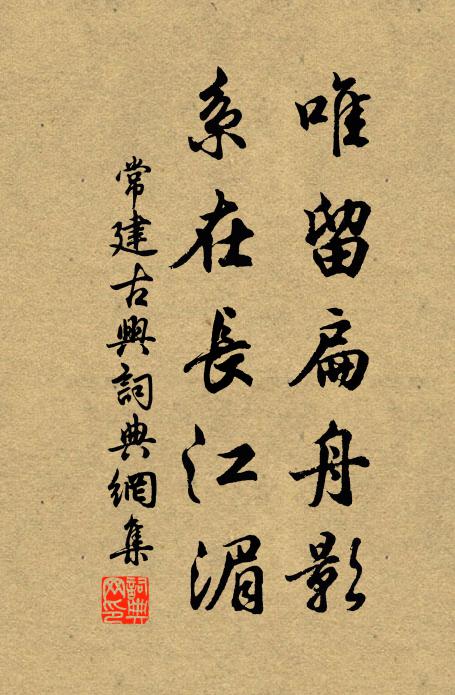 唯留扁舟影
系在長江湄
常建古興詞典網集
詞典网印